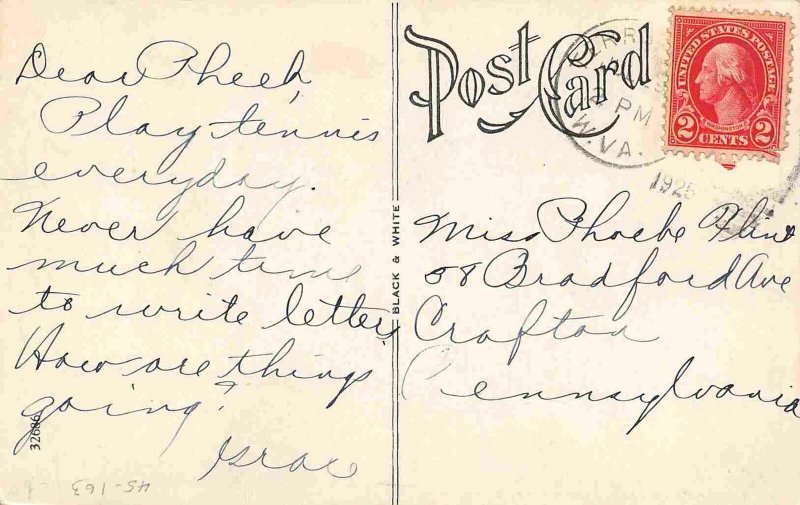 Dear Pheeb,
Play tennis
everyday.
Never have
much time
to write letters
How are things
going?
Grace
32686
45-163
BLACK & WHITE
Post Card
PM
W.VA.
1925
UNITED STATES POSTAGE
WASHINGTON
2 CENTS 2
Miss Phoebe Flint
58 Bradford Ave
Crafton
Pennsylvania